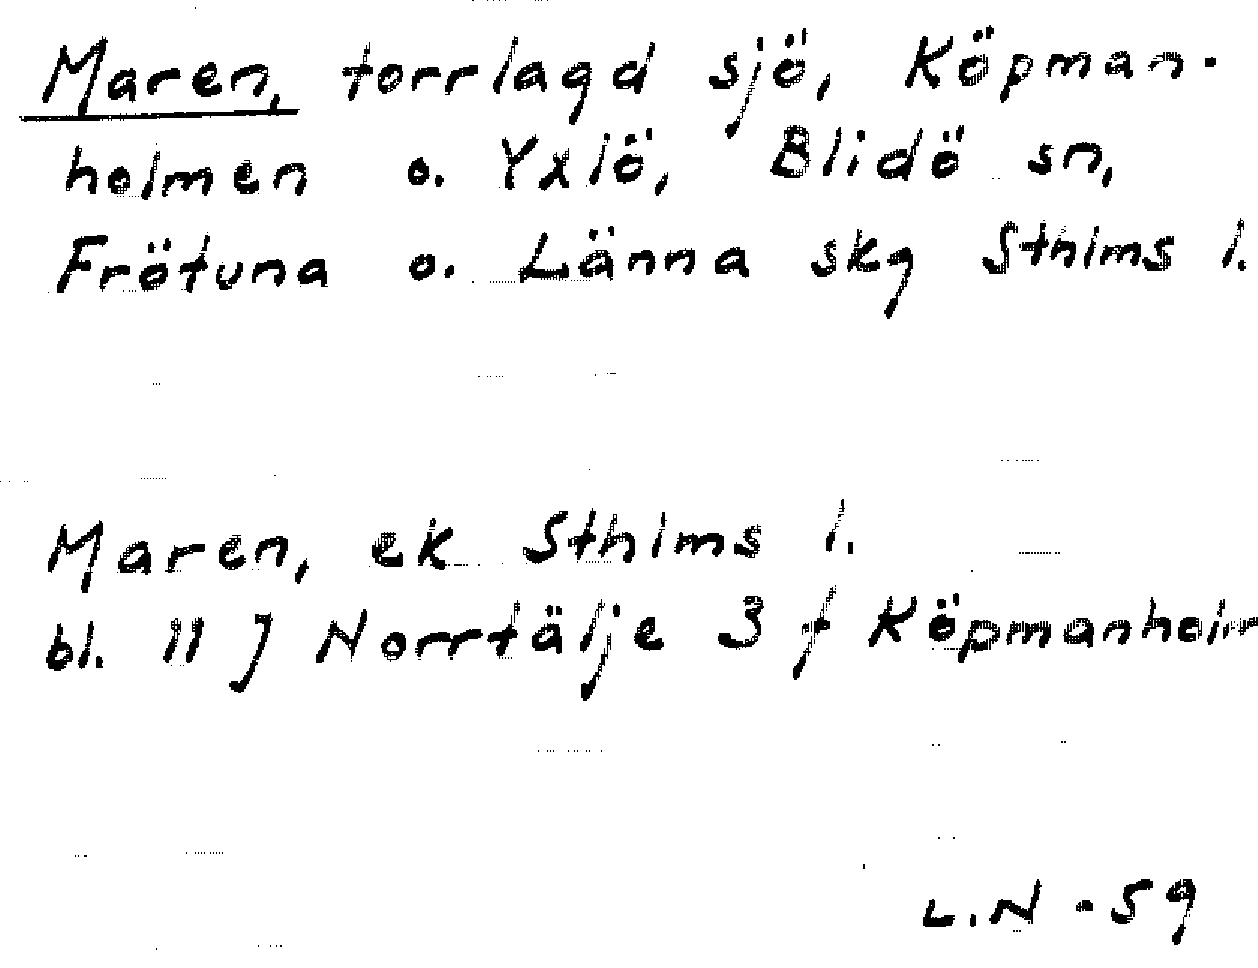 Maren, torrlagd sjö, Köpman-
holmen o. Yxlö, Blidö sn,
Frötuna o. Länna skg Sthlms l.
Maren, ek Sthlms l.
bl. 11 J Norrtälje 3 f Köpmanholm
L.N -59